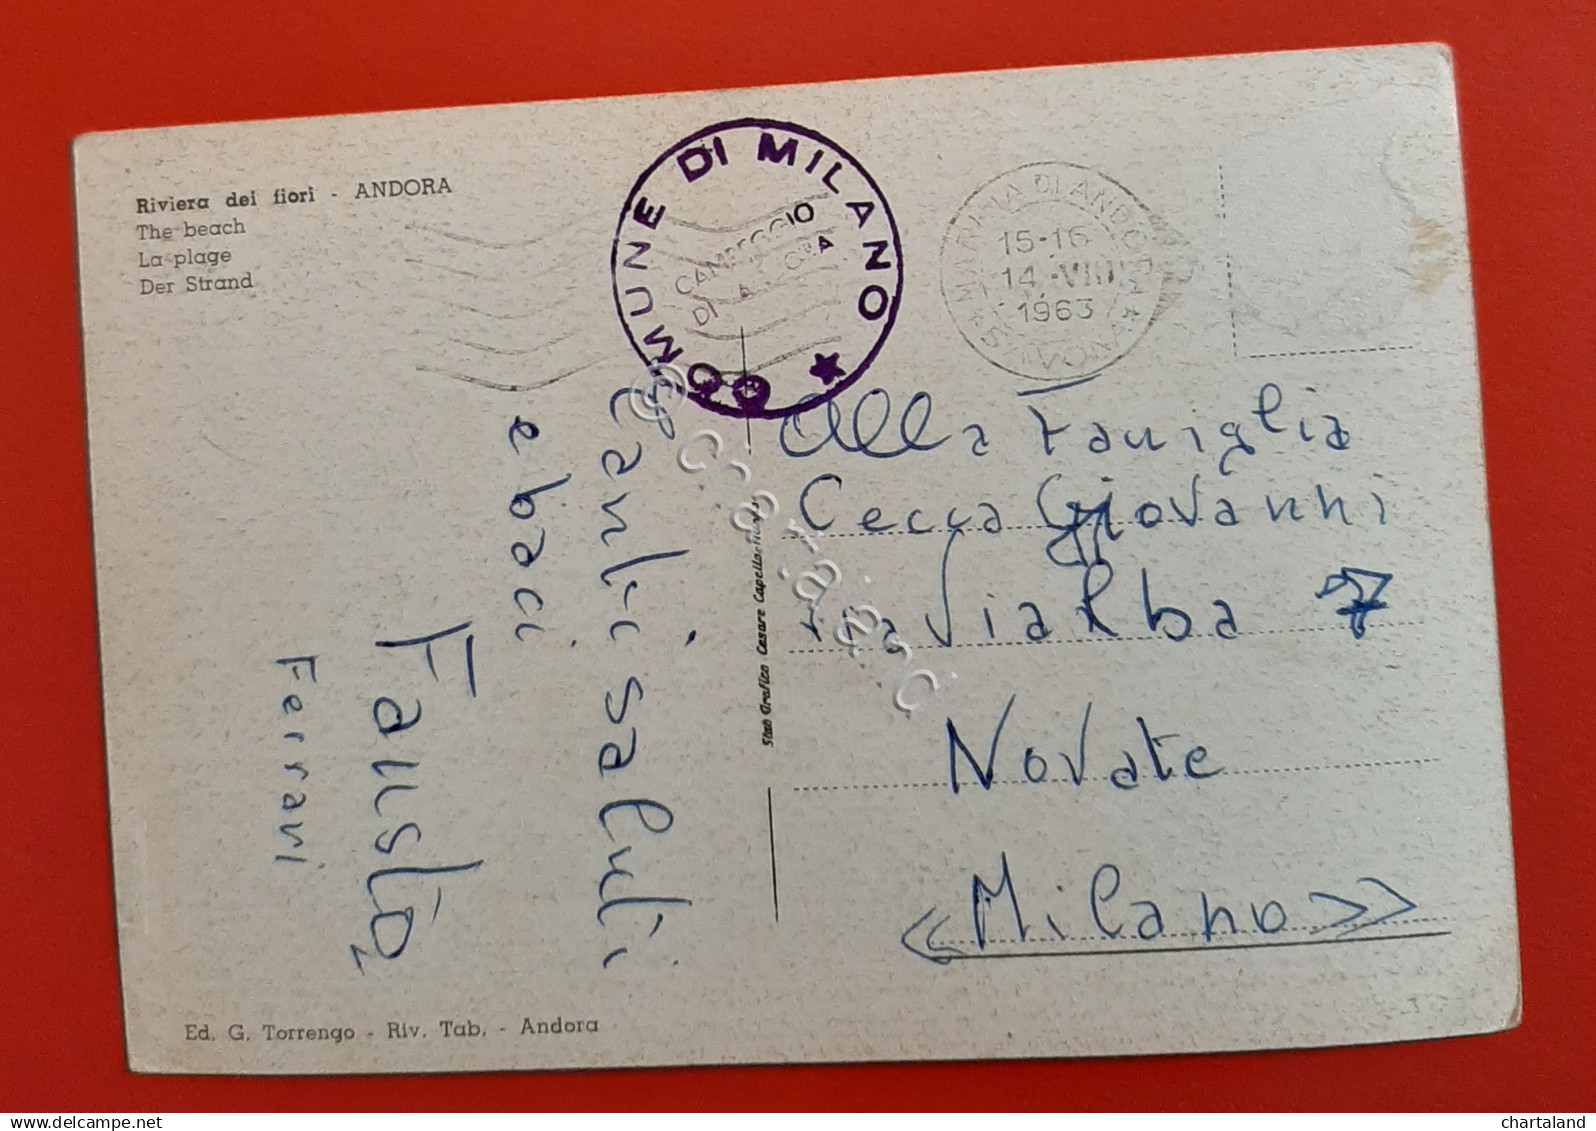 Riviera dei fiori - ANDORA
The beach
La plage
Der Strand
COMUNE DI MILANO
CAMPEGGIO
DI
MARINA DI ANDORA
15-16
14 -VIII
1963
SAVONA
Tanti saluti
e baci
Fausto
Ferrari
Alla Famiglia
Cecca Giovanni
Via Vialba 7
Novate
«Milano»
Stab Grafico Cesare Capello
Ed. G. Torrengo - Riv. Tab. - Andora
© chartaland
chartaland